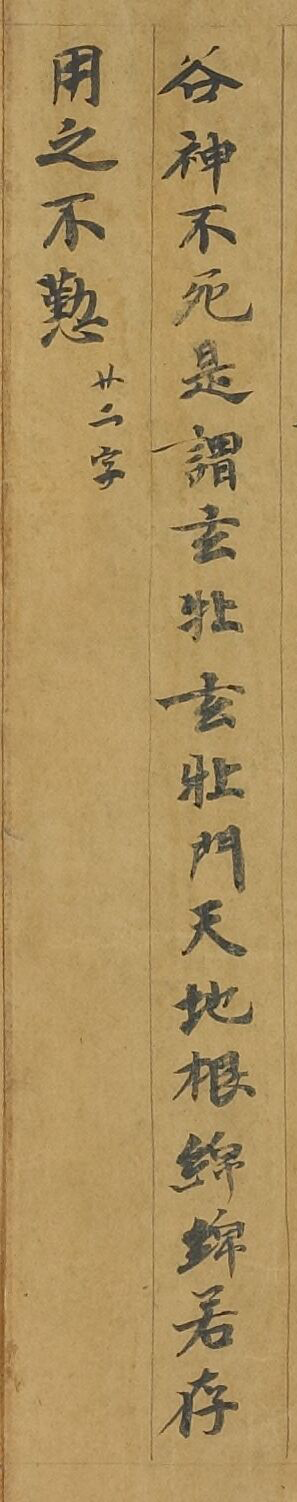 谷神不死是謂玄牝玄牝門天地根綿綿若存
用之不懃
廿二字